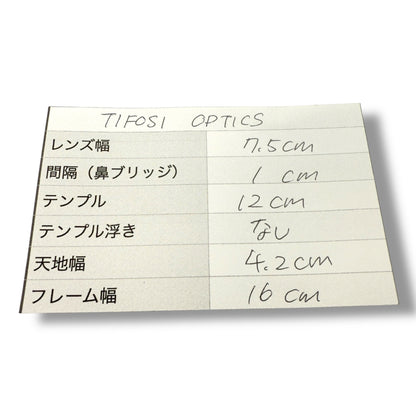 TIFOSI OPTICS
レンズ幅 7.5cm
間隔（鼻ブリッジ） 1 cm
テンプル 12cm
テンプル浮き なし
天地幅 4.2cm
フレーム幅 16cm